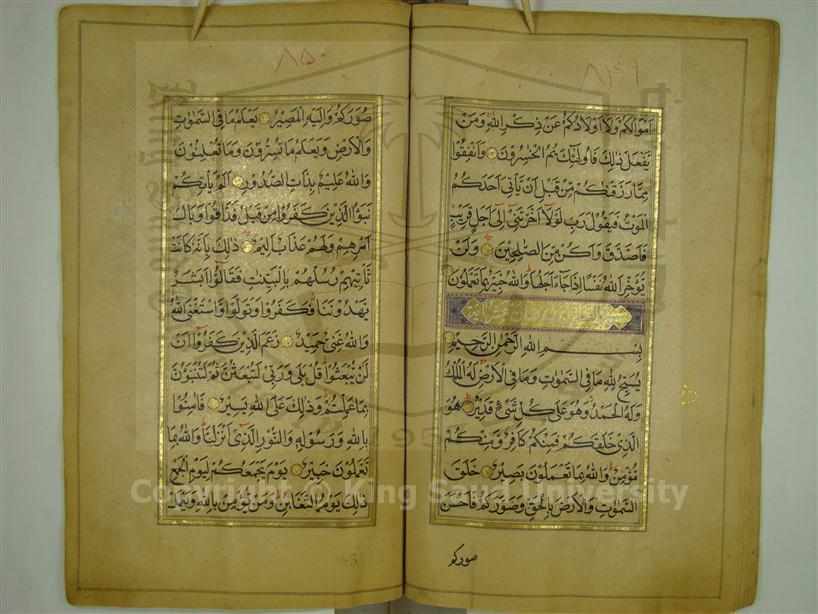 ٨٤٩
اموالكم ولا اولادكم عن ذكر الله ومن
يفعل ذلك فاولئك هم الخسرون وانفقوا
مما رزقنكم من قبل ان ياتى احدكم
الموت فيقول رب لولا اخرتنى الى اجل قريب
فاصدق واكن من الصلحين ولن
يؤخر الله نفسا اذا جاء اجلها والله خبير بما تعملون
بسم الله الرحمن الرحيم
يسبح لله ما فى السموت وما فى الارض له الملك
وله الحمد وهو على كل شىء قدير هو
الذى خلقكم فمنكم كافر ومنكم
مؤمن والله بما تعملون بصير خلق
السموت والارض بالحق وصوركم فاحسن
صوركم
٨٥٠
صوركم واليه المصير يعلم ما فى السموت
والارض ويعلم ما تسرون وما تعلنون
والله عليم بذات الصدور الم ياتكم
نبؤا الذين كفروا من قبل فذاقوا وبال
امرهم ولهم عذاب اليم ذلك بانه كانت
تاتيهم رسلهم بالبينت فقالوا ابشر
يهدوننا فكفروا وتولوا واستغنى الله
والله غنى حميد زعم الذين كفروا ان
لن يبعثوا قل بلى وربى لتبعثن ثم لتنبؤن
بما عملتم وذلك على الله يسير فامنوا
بالله ورسوله والنور الذى انزلنا والله بما
تعملون خبير يوم يجمعكم ليوم الجمع
ذلك يوم التغابن ومن يؤمن بالله ويعمل
Copyright © King Saud University